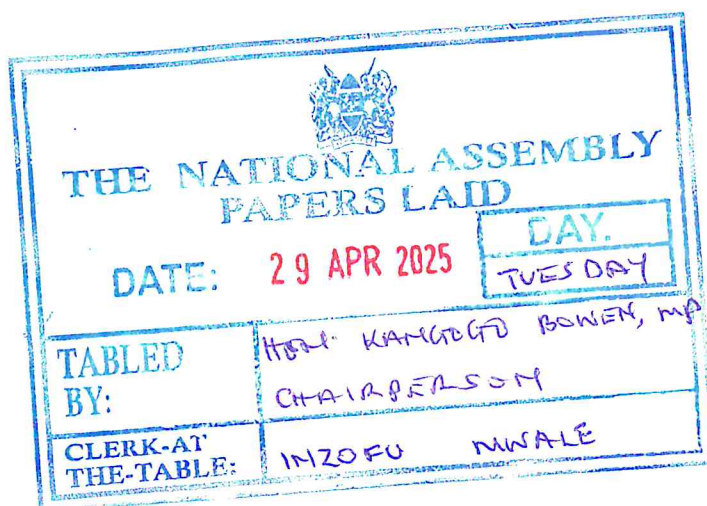 THE NATIONAL ASSEMBLY
PAPERS LAID
DATE: 29 APR 2025
DAY.
TUESDAY
TABLED BY:
HON. KANGOGO BOWEN, MP
CHAIRPERSON
CLERK-AT THE-TABLE:
INZOFU MWALE